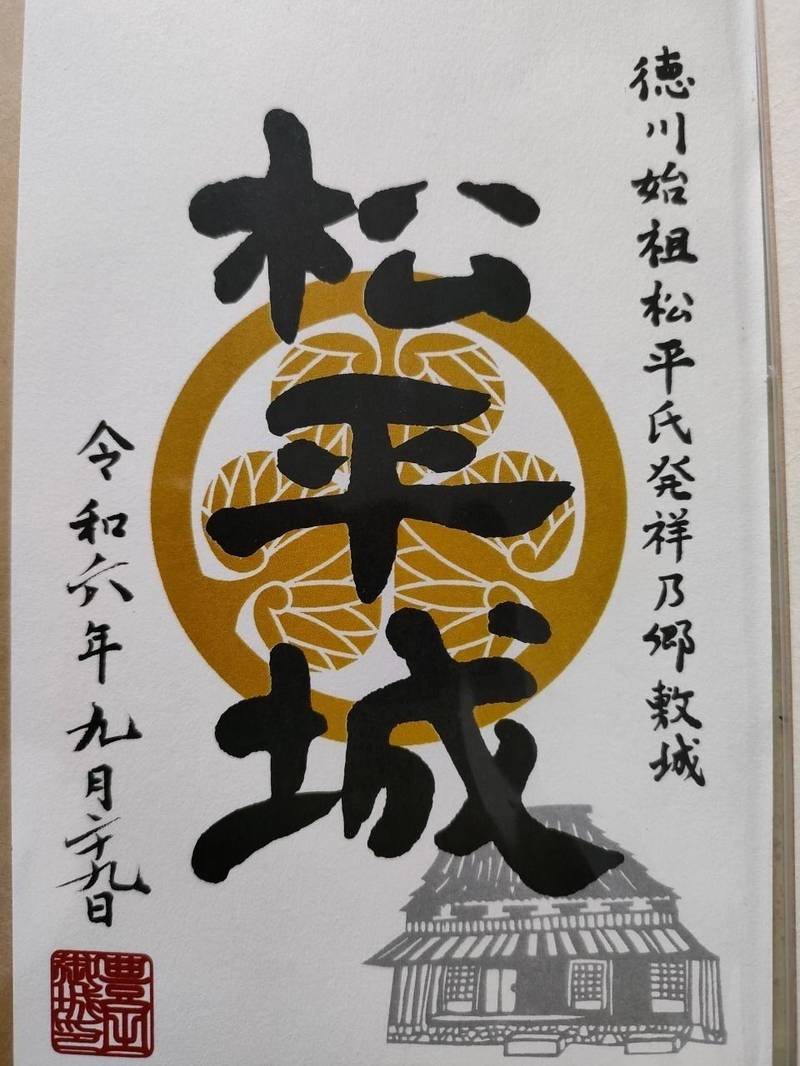 徳川始祖松平氏発祥乃郷敷城
松平城
令和六年九月二十九日
豊田
御城印